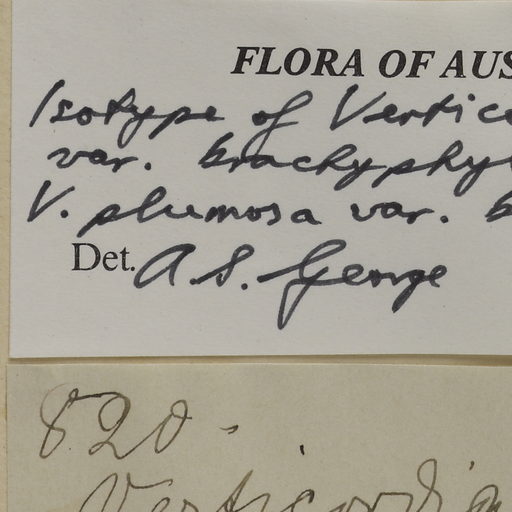 FLORA OF AUS
Isotype of Vertico
var. brachyphyl
V. plumosa var. b
Det. A. S. George
820.
Verticordia